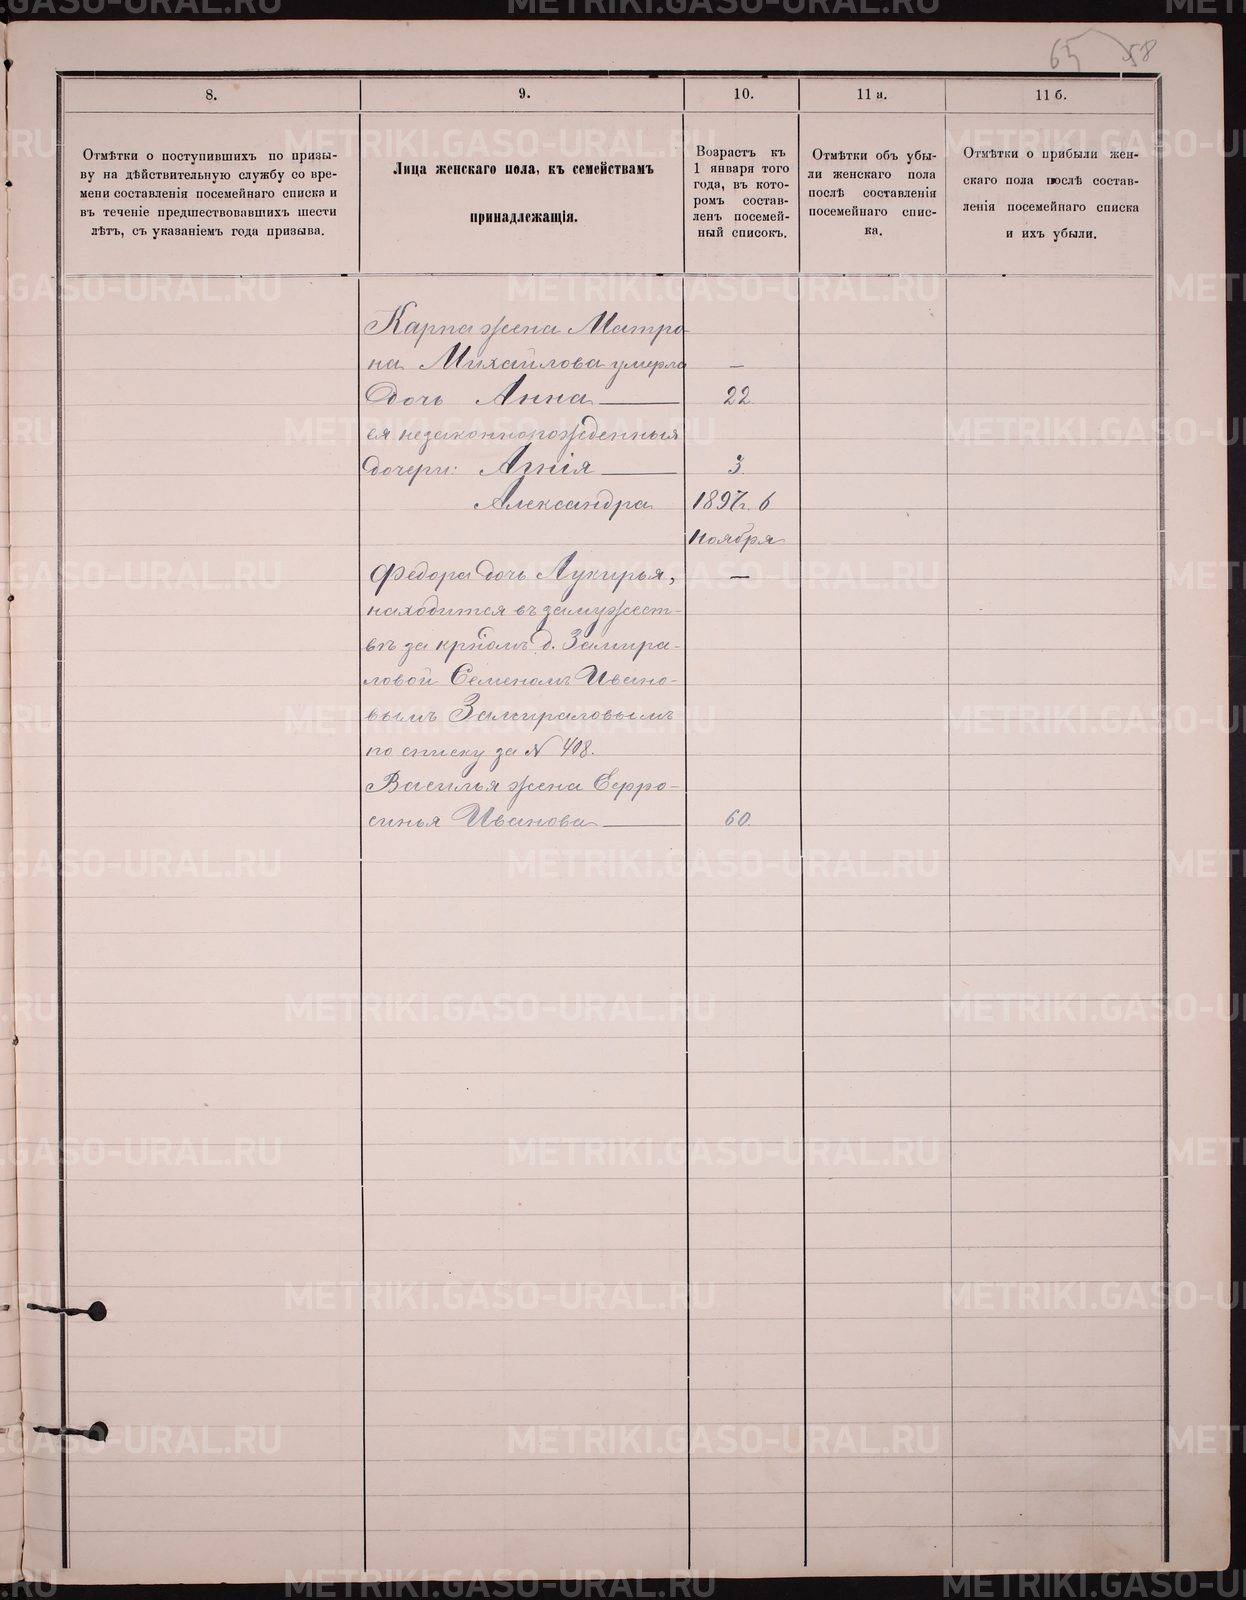 65 58
8.
9.
10.
11 а.
11 б.
Отмѣтки о поступившихъ по призы-
ву на дѣйствительную службу со вре-
мени составленія посемейнаго списка и
въ теченіе предшествовавшихъ шести
лѣтъ, съ указаніемъ года призыва.
Лица женскаго пола, къ семействамъ
принадлежащія.
Возрастъ къ
1 января того
года, въ кото-
ромъ состав-
ленъ посемей-
ный списокъ.
Отмѣтки объ убы-
ли женскаго пола
послѣ составленія
посемейнаго спис-
ка.
Отмѣтки о прибыли жен-
скаго пола послѣ состав-
ленія посемейнаго списка
и ихъ убыли.
Карпа жена Матро-
на Михайлова умерла —
Дочь Анна — 22
ея незаконнорожденныя
дочери: Агнія — 3
Александра 1897 г. 6
ноября
Федора дочь Лукирья, —
находится въ замужест-
вѣ за кр-номъ д. Замира-
ловой Семеномъ Ивано-
вымъ Замираловымъ
по списку за № 408.
Василья жена Ефро-
синья Иванова — 60
METRIKI.GASO-URAL.RU